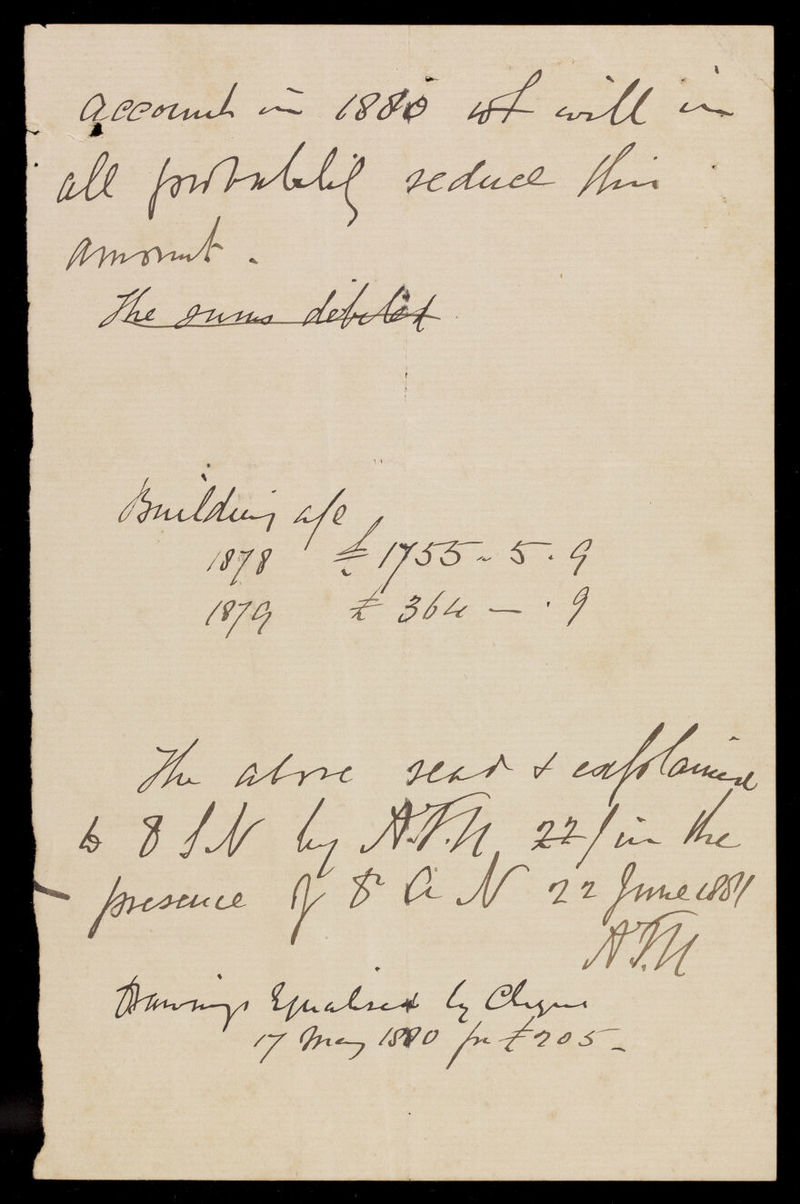 account in 1880 wh will in
all probability reduce this
amount.
The sums debited
Building a/c
1878 £1755 - 5 . 9
1879 £ 364 — . 9
The above read & explained
to F S N by A.T.M 22/ in the
presence of F A N 22 June 1881
A.T.M
Drawings Equalised by Cheque
17 May 1880 for £205 -